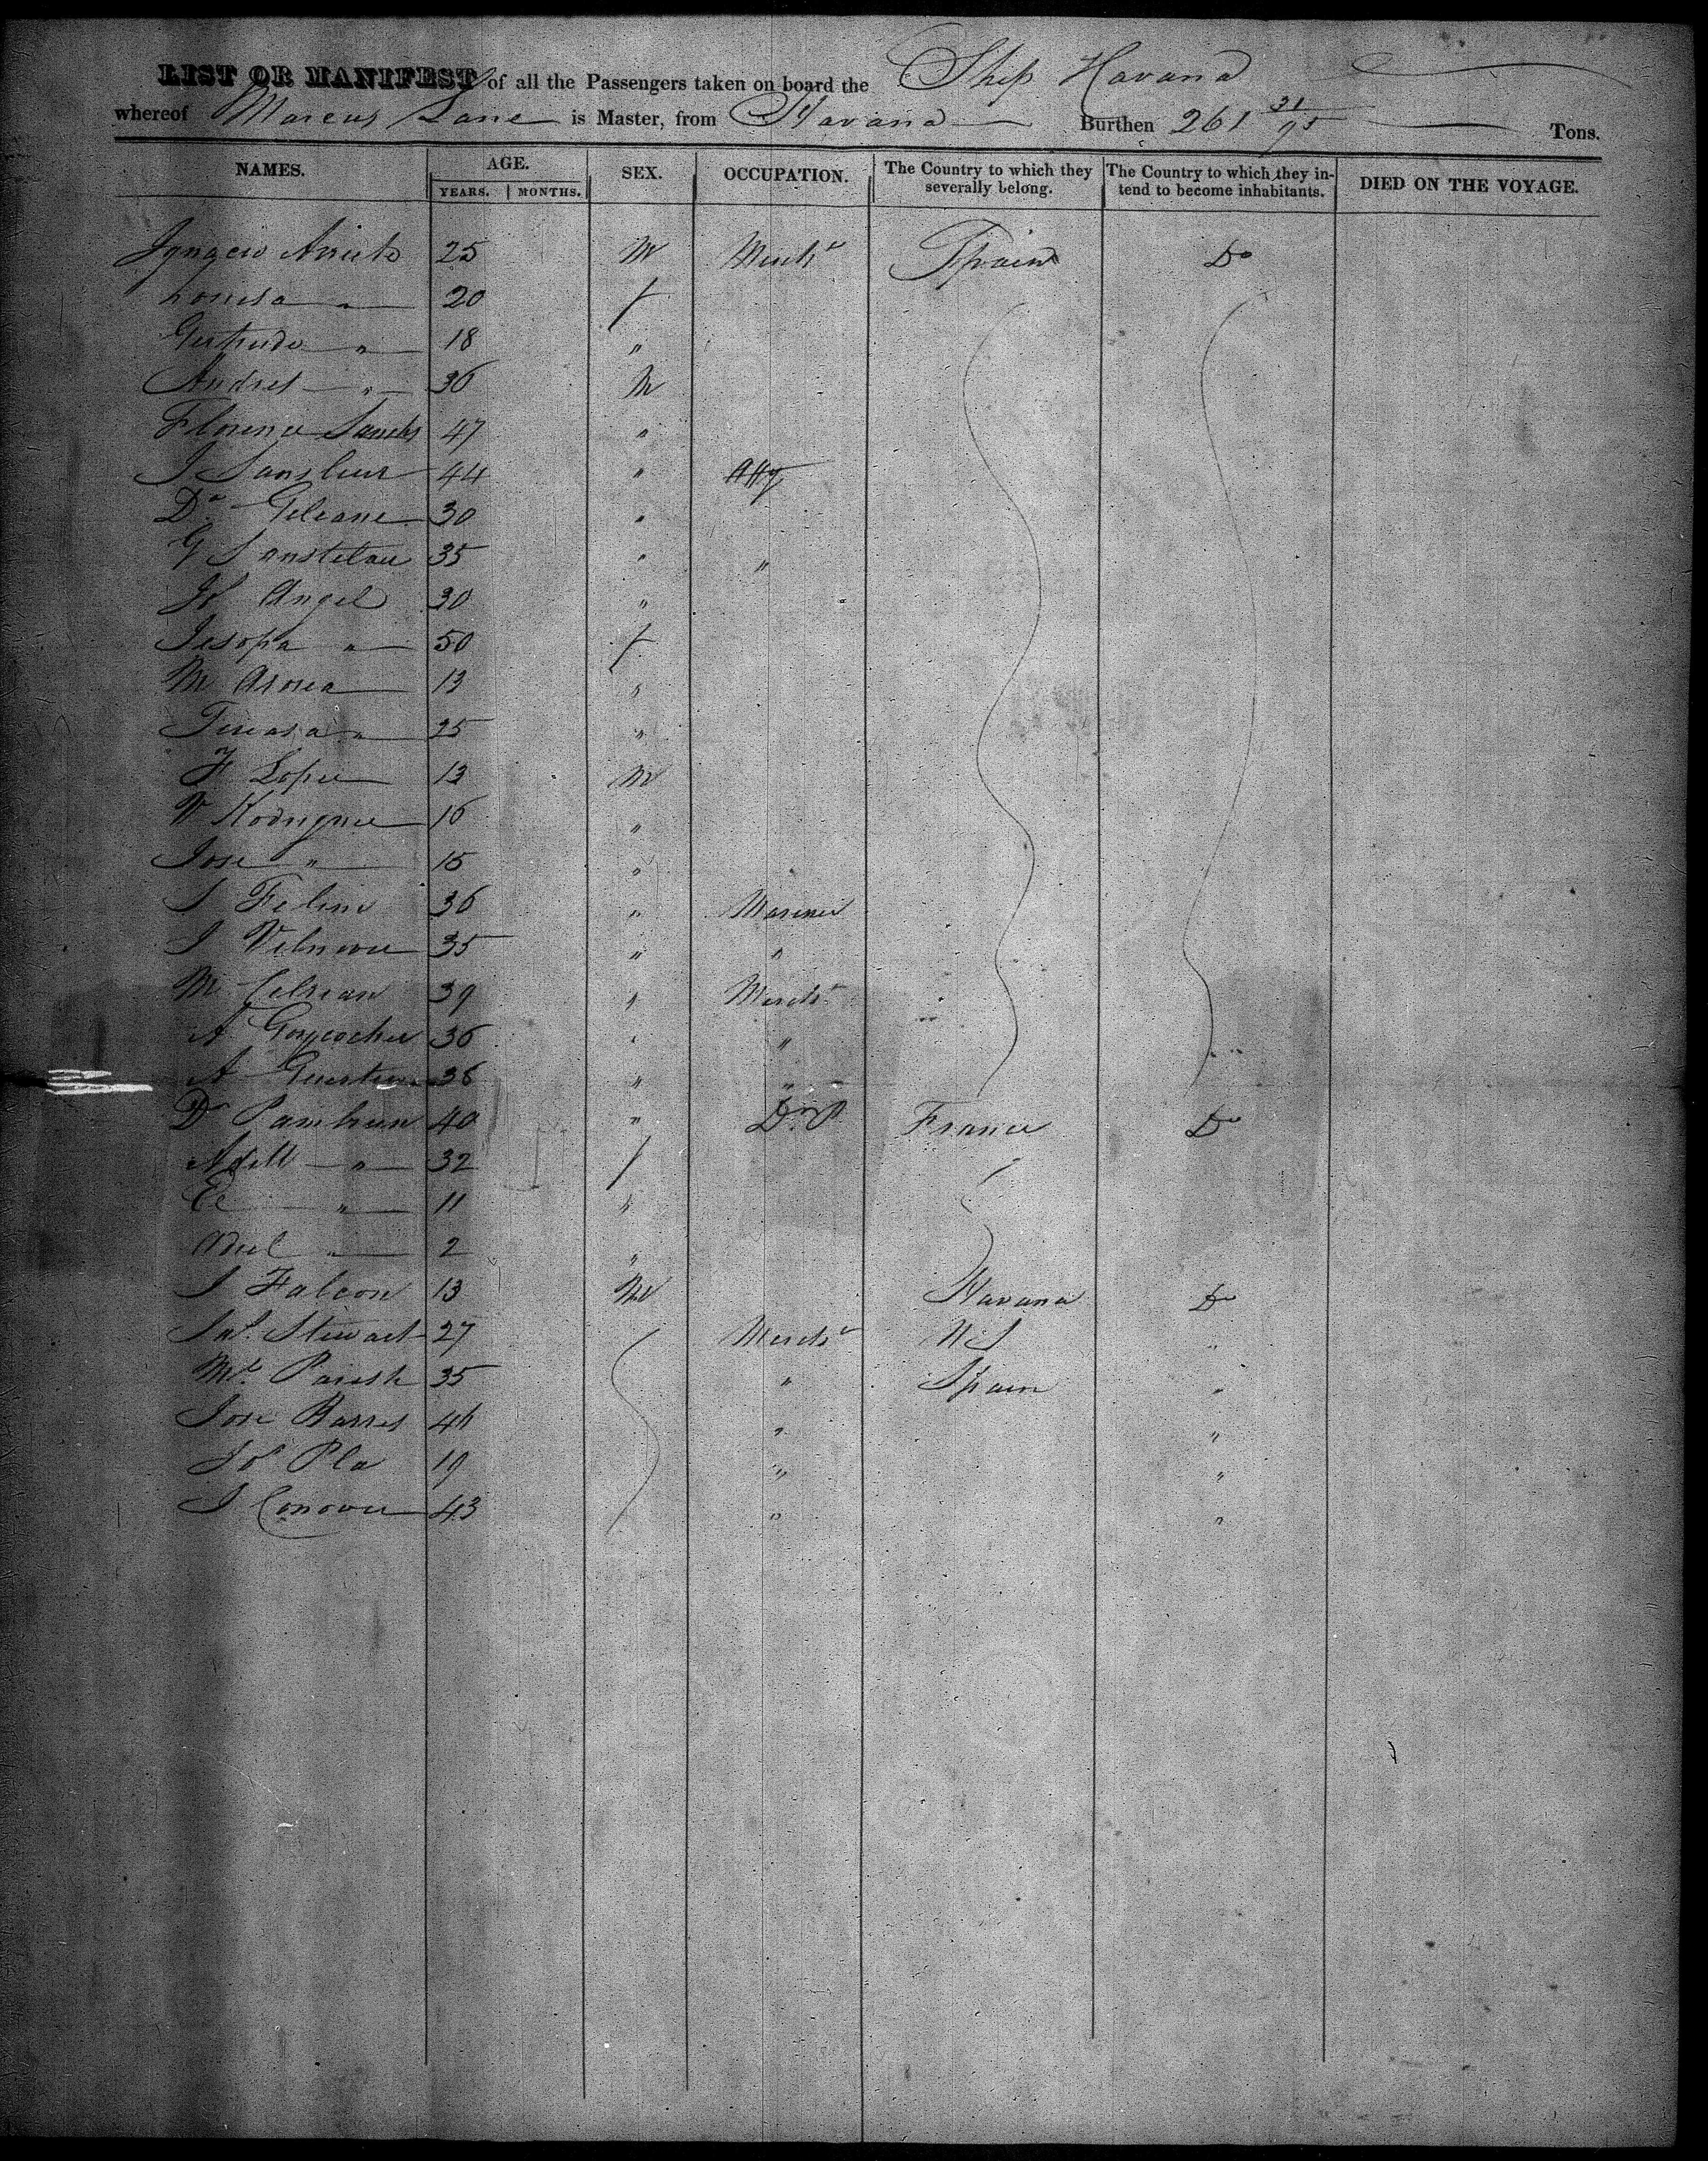 LIST OR MANIFEST of all the Passengers taken on board the Ship Havana
whereof Marcus Lane is Master, from Havana Burthen 261 31/95 Tons.
NAMES. AGE. YEARS. MONTHS. SEX. OCCUPATION. The Country to which they severally belong. The Country to which they intend to become inhabitants. DIED ON THE VOYAGE.
Ignacio 25 M Mercht Spain Do
Louisa " 20 f
Gertrude " 18 "
Andres " 36 M
Florence 47 "
J 44 " Atty
30 "
G 35 " "
Jo Angel 30 "
" 50 f
M 13 "
Teresa " 25 "
F Lopee 13 M
V Rodriguee 16 "
Jose " 15 "
J 36 " Mariner
J 35 " "
M 39 " Mercht
A Goycochee 36 " "
A 38 " "
Pambrun 40 " France Do
" 32 f
" 11 "
Adel " 2 "
J Falcon 13 M Havana Do
Jno. Stewart 27 Mercht US "
Mr. Parish 35 " Spain "
Jose Barres " "
Jo Pla 19 " "
J Conover 43 " "